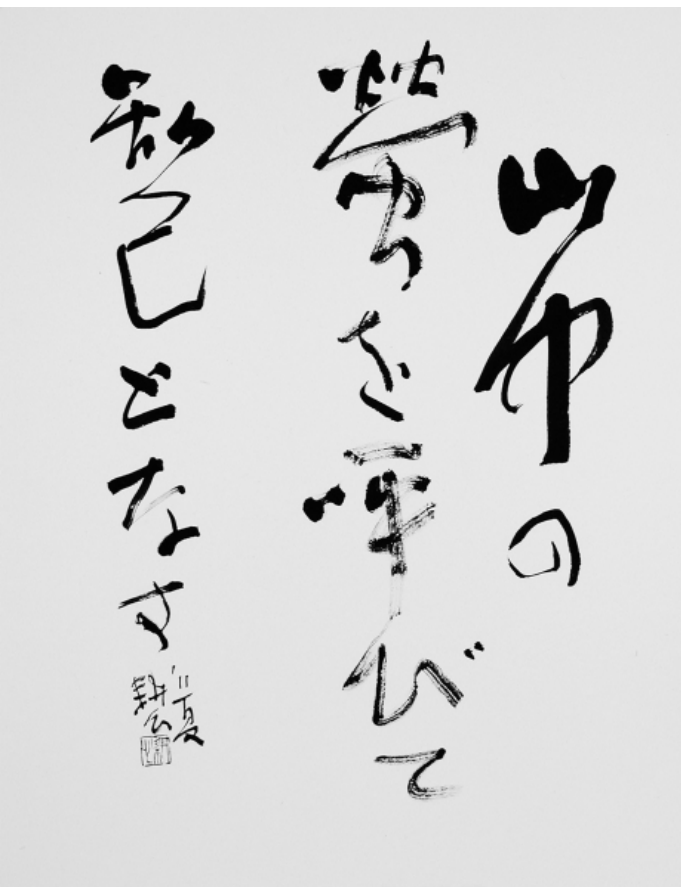 山中の
螢を呼びて
知己となす
'11夏